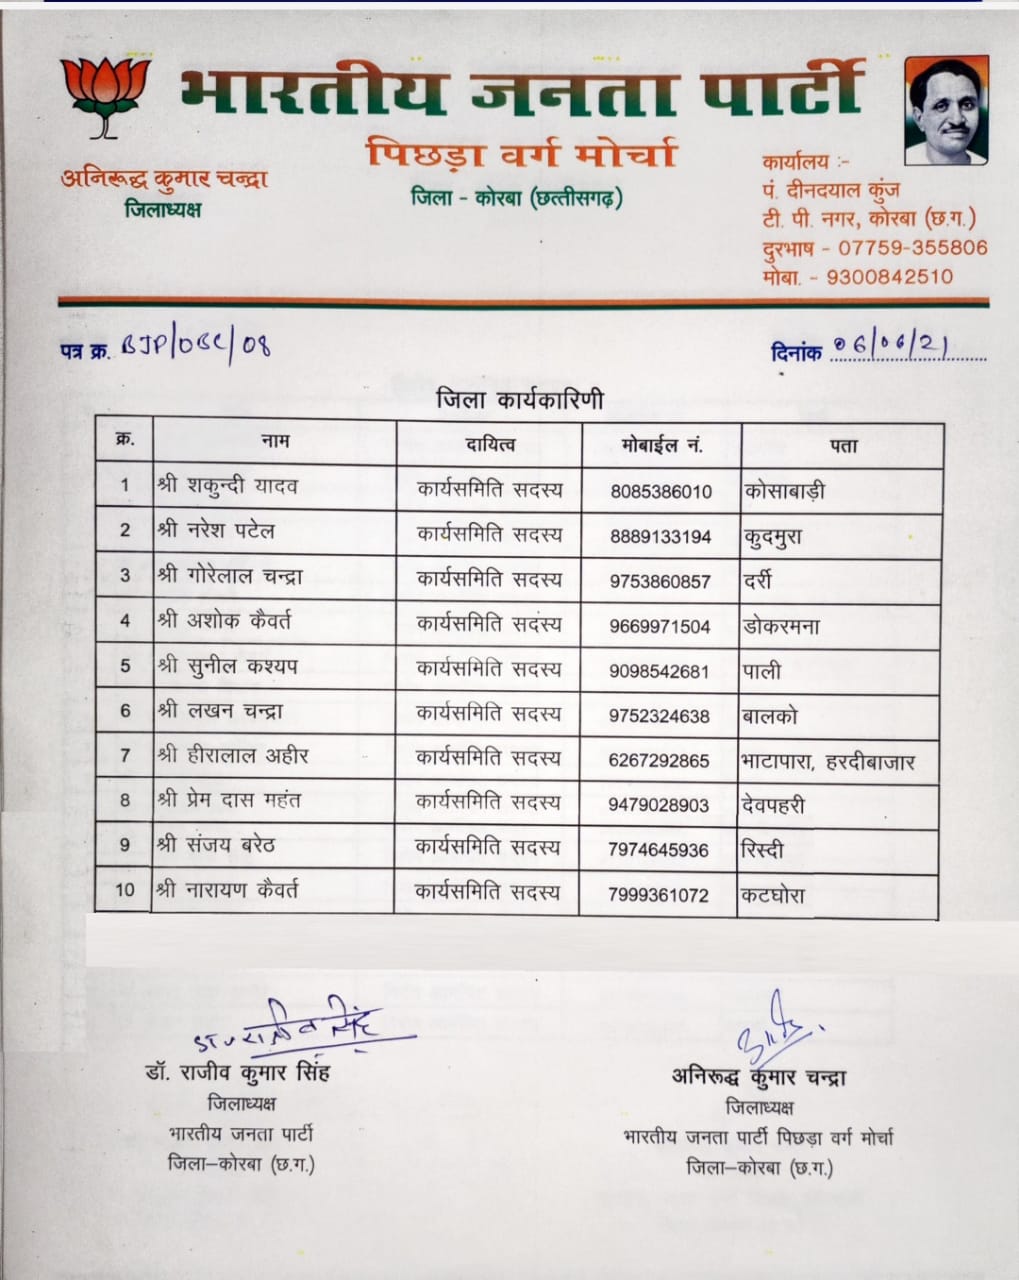 भारतीय जनता पार्टी
पिछड़ा वर्ग मोर्चा
जिला - कोरबा (छत्तीसगढ़)
अनिरूद्ध कुमार चन्द्रा
जिलाध्यक्ष
कार्यालय :-
पं. दीनदयाल कुंज
टी. पी. नगर, कोरबा (छ.ग.)
दुरभाष - 07759-355806
मोबा. - 9300842510
पत्र क्र. BJP/OBC/08
दिनांक 06/06/21
जिला कार्यकारिणी
क्र. नाम दायित्व मोबाईल नं. पता
1 श्री शकुन्दी यादव कार्यसमिति सदस्य 8085386010 कोसाबाड़ी
2 श्री नरेश पटेल कार्यसमिति सदस्य 8889133194 कुदमुरा
3 श्री गोरेलाल चन्द्रा कार्यसमिति सदस्य 9753860857 दर्री
4 श्री अशोक कैवर्त कार्यसमिति सदस्य 9669971504 डोकरमना
5 श्री सुनील कश्यप कार्यसमिति सदस्य 9098542681 पाली
6 श्री लखन चन्द्रा कार्यसमिति सदस्य 9752324638 बालको
7 श्री हीरालाल अहीर कार्यसमिति सदस्य 6267292865 भाटापारा, हरदीबाजार
8 श्री प्रेम दास महंत कार्यसमिति सदस्य 9479028903 देवपहरी
9 श्री संजय बरेठ कार्यसमिति सदस्य 7974645936 रिस्दी
10 श्री नारायण कैवर्त कार्यसमिति सदस्य 7999361072 कटघोरा
डॉ. राजीव कुमार सिंह
जिलाध्यक्ष
भारतीय जनता पार्टी
जिला–कोरबा (छ.ग.)
अनिरूद्ध कुमार चन्द्रा
जिलाध्यक्ष
भारतीय जनता पार्टी पिछड़ा वर्ग मोर्चा
जिला–कोरबा (छ.ग.)